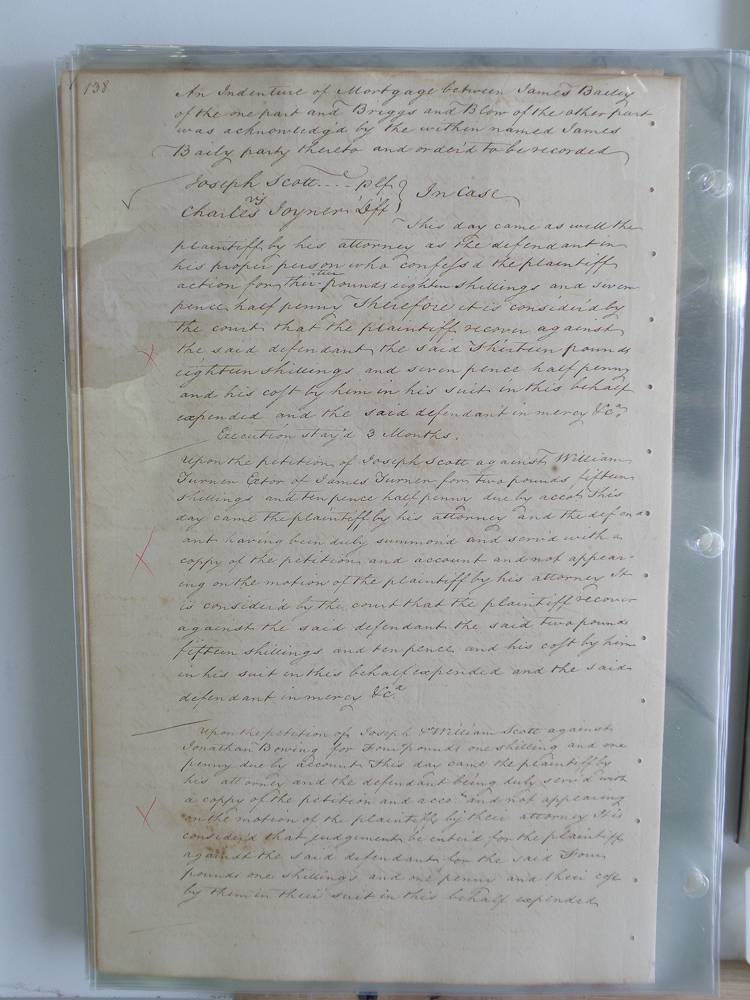 138
An Indenture of Mortgage between James Bailey
of the one part and Briggs and Blow of the other part
was acknowledg'd by the within named James
Baily party thereto and order'd to be recorded
Joseph Scott Plf
vs } In Case
Charles Joyner Dft
This day came as will the
plaintiff by his attorney as the defendant in
his proper person who confess'd the plaintiff
action for thirteen pounds eighteen shillings and seven
pence half penny Therefore it is consider'd by
the court that the plaintiff recover against
the said defendant the said Thirteen pounds
eighteen shillings and seven pence half penny
and his cost by him in his suit in this behalf
expended and the said defendant in mercy &ca.
Execution stay'd 3 Months.
Upon the petition of Joseph Scott against William
Turner Exor of James Turner for two pounds fifteen
shillings and ten pence half penny due by accot. This
day came the plaintiff by his attorney and the defend
ant having been duly summond and serv'd with a
coppy of the petition and account and not appear-
ing on the motion of the plaintiff by his attorney It
is consider'd by the court that the plaintiff recover
against the said defendant the said two pounds
fifteen shillings and ten pence and his cost by him
in his suit in this behalf expended and the said
defendant in mercy &ca
Upon the petition of Joseph & William Scott against
Jonathan Bowing for Four pounds one shilling and one
penny due by account This day came the plaintiff by
his attorney and the defendant being duly serv'd with
a coppy of the petition and acco.t and not appearing
on the motion of the plaintiffs by their attorney It is
consider'd that judgement be enter'd for the plaintiff
against the said defendant for the said Four
pounds one shillings and one penny and their cost
by them in their suit in this behalf expended